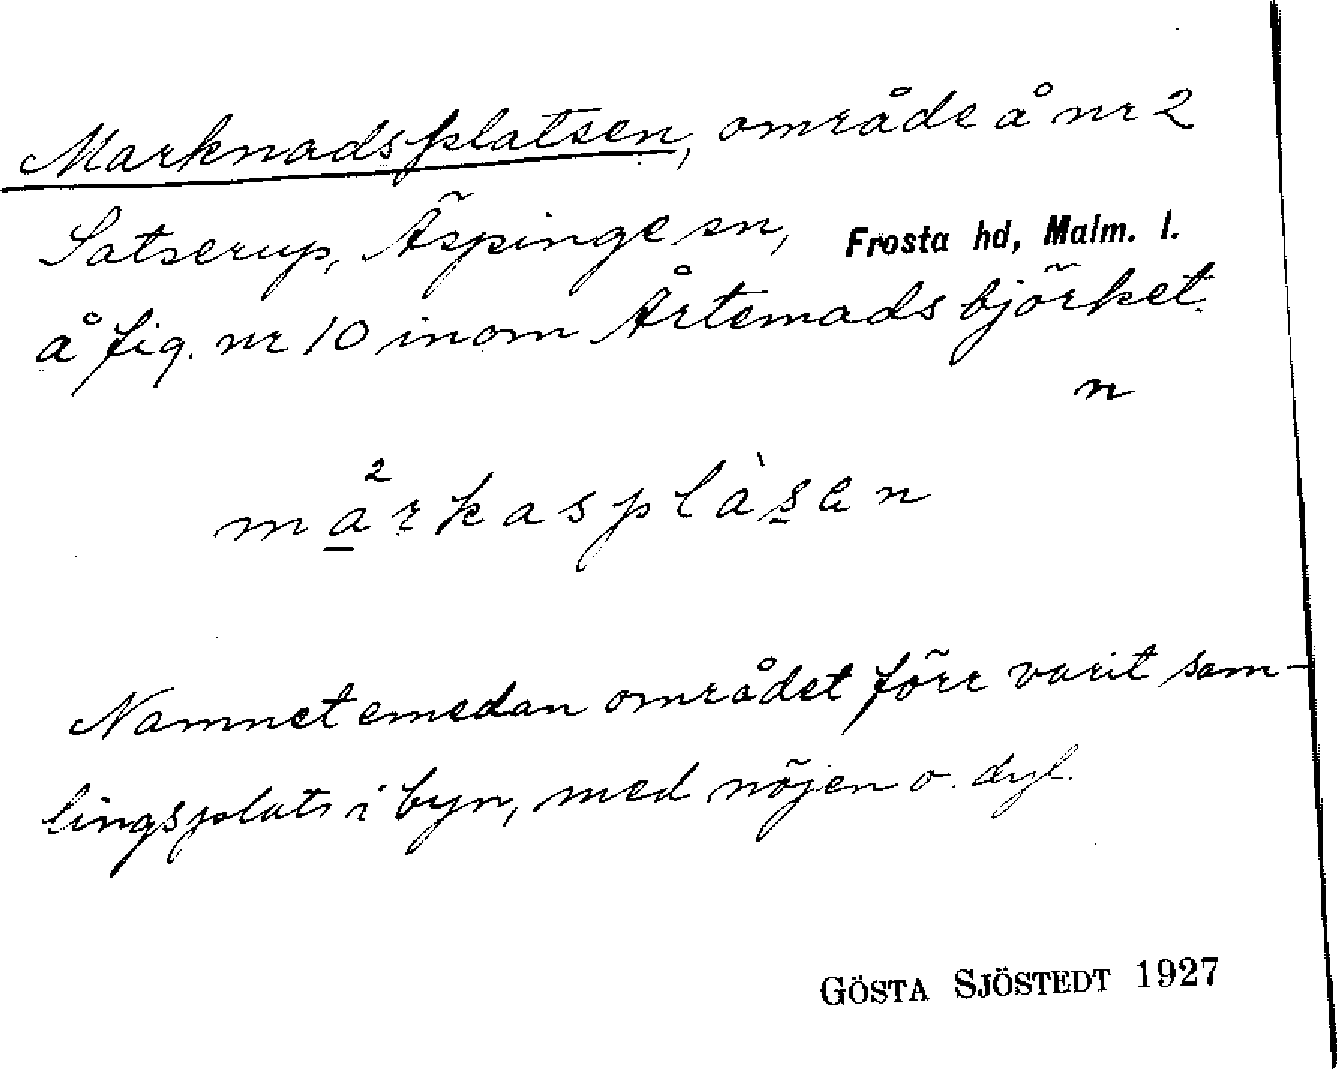 Marknadsplatsen, område å nr 2
Satserup, Äspinge sn, Frosta hd, Malm. l.
å fig. nr 10 inom Årtemadsbjörket.
n
märkasplàsen
Namnet emedan området förr varit sam-
lingsplats i byn, med nöjen o. dyl.
GÖSTA SJÖSTEDT 1927